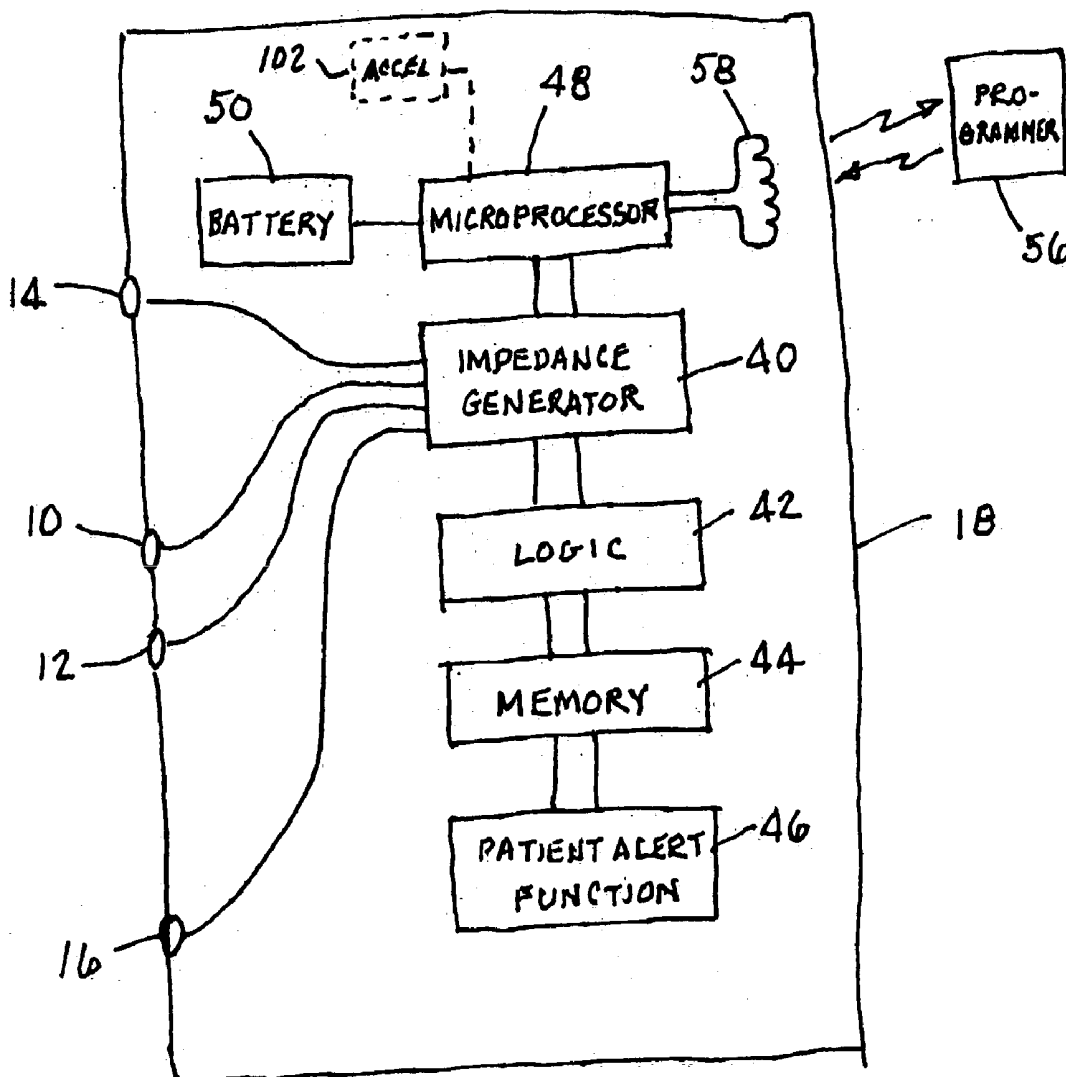 102
ACCEL
58
50
48
PRO-
GRAMMER
BATTERY
MICROPROCESSOR
56
14
IMPEDANCE
GENERATOR
40
10
42
18
LOGIC
12
44
MEMORY
46
PATIENT ALERT
FUNCTION
16